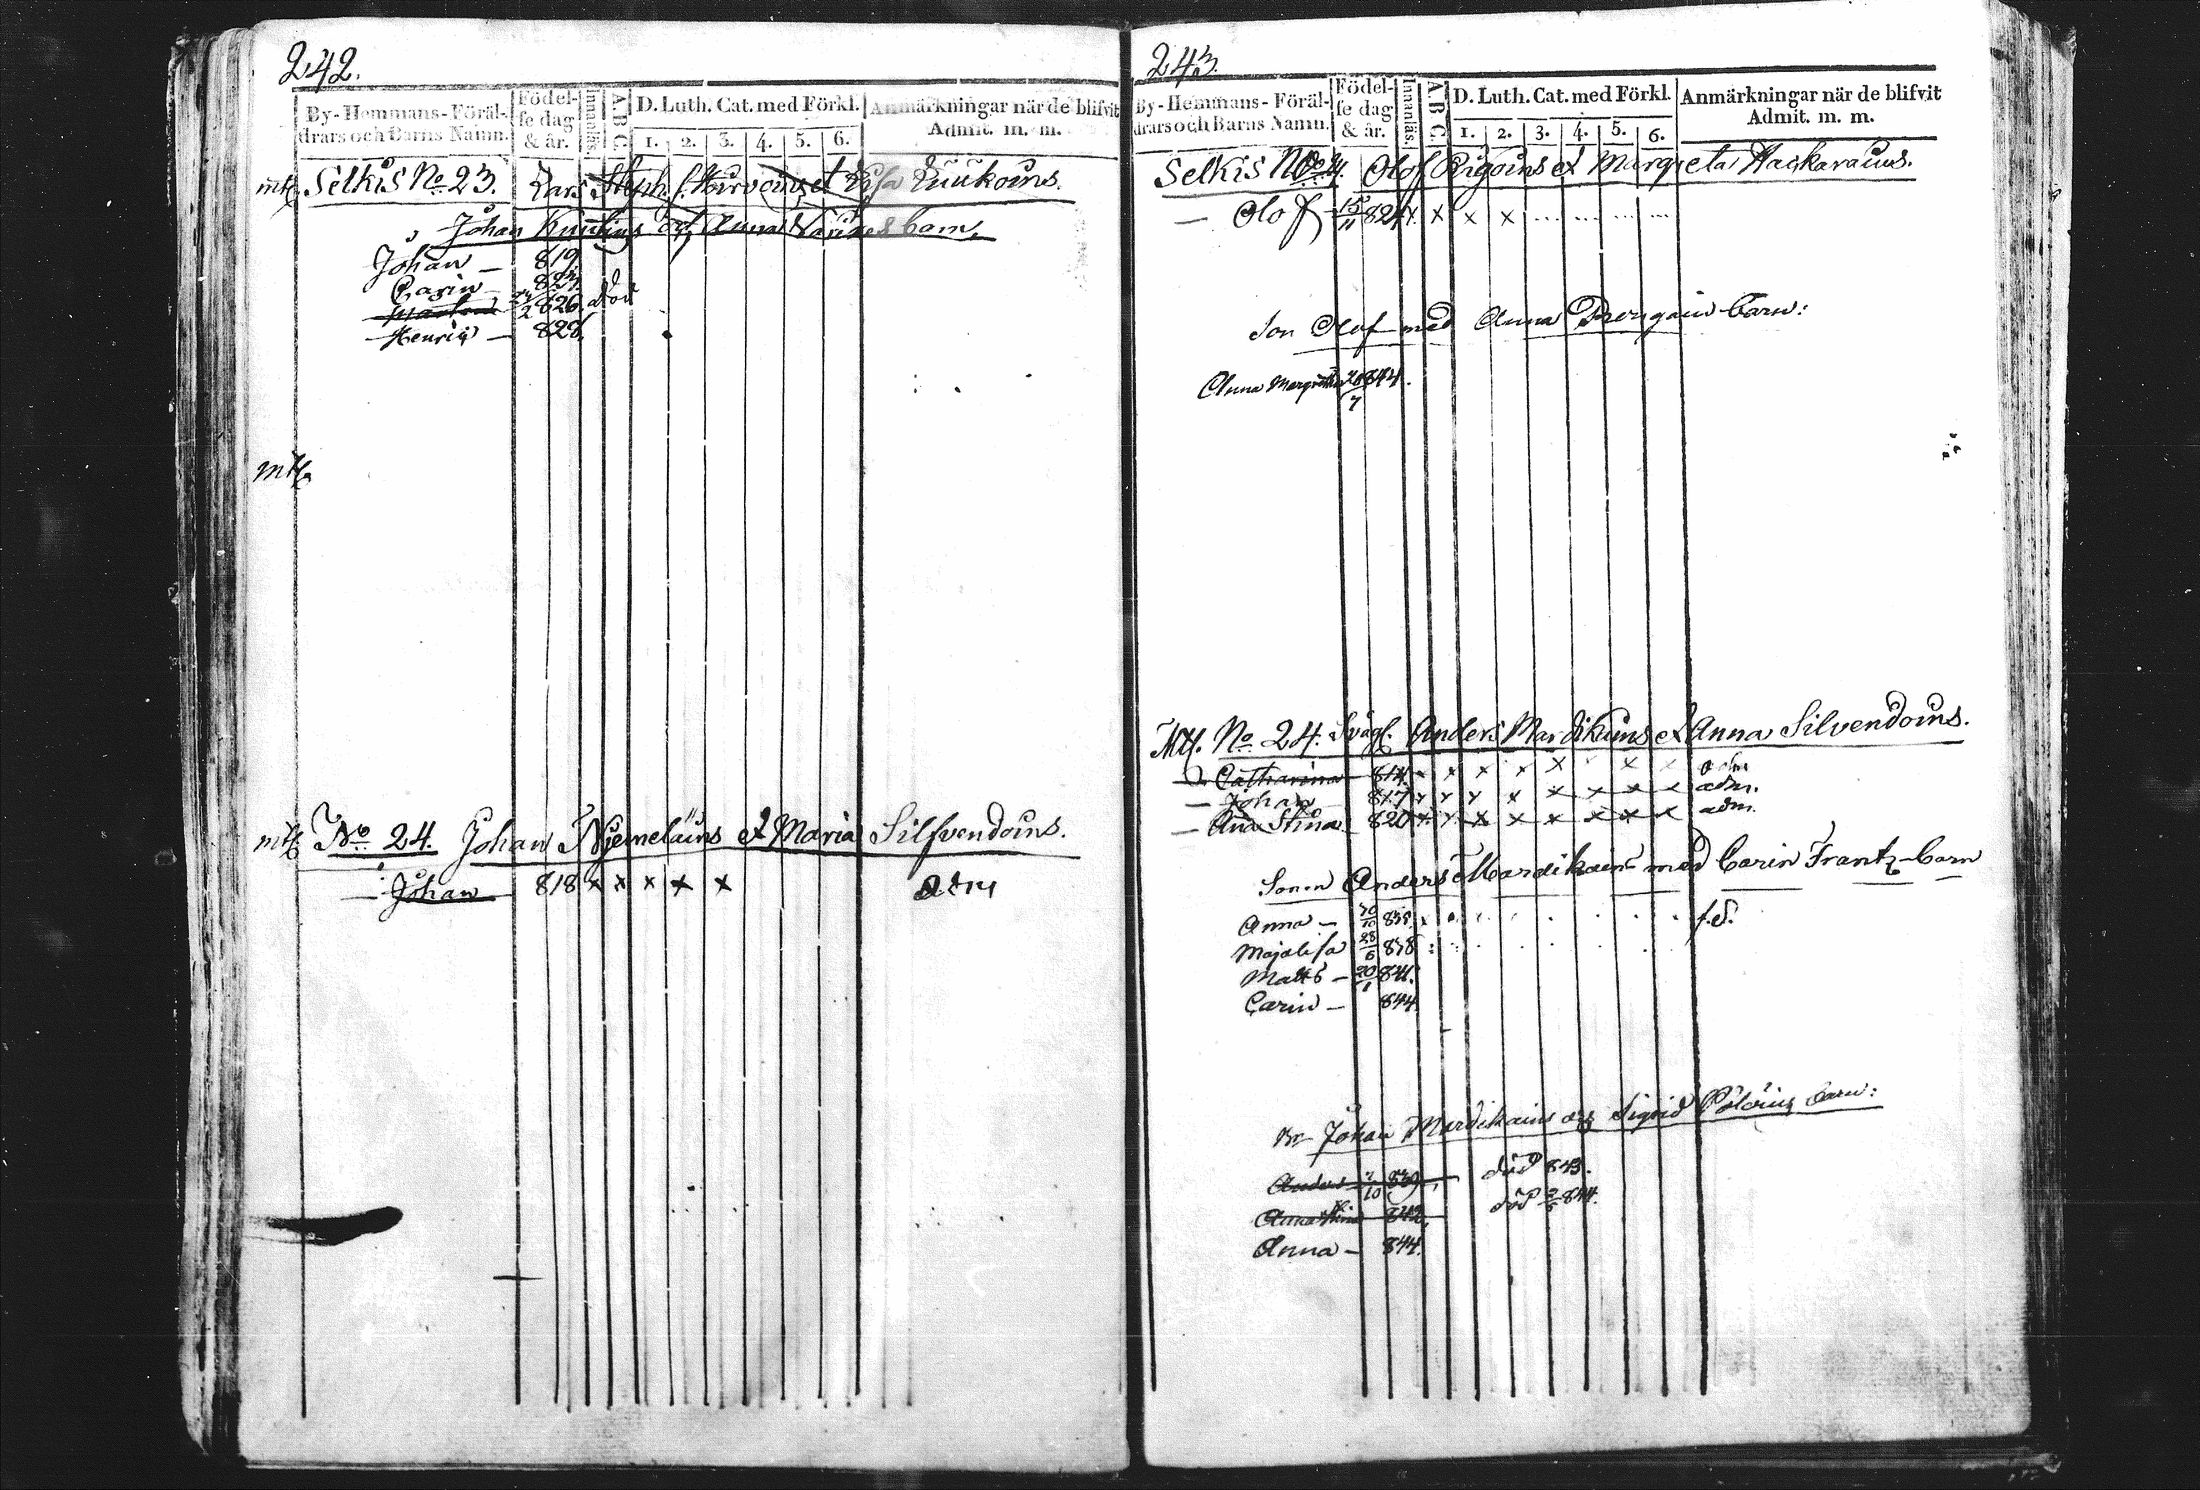 242.
By-Hemmans-Föräl-
drars och Barns Namn.
Födel-
se dag
& år.
Innanläs.
A B C
D. Luth. Cat. med Förkl.
1. 2. 3. 4. 5. 6.
Anmärkningar när de blifvit
Admit. m. m.
mtl. Selkis No 23. Lars Steph. s. Hirvoins et Lisa
Johan och Anna barn.
Johan — 819.
Carin 823.
826. död
Henric — 828.
mtl.
mtl. No 24. Johan Njemeläins et Maria Silfvendoins.
— Johan — 818 x x x x x adm
243.
By-Hemmans-Föräl-
drars och Barns Namn.
Födel-
se dag
& år.
Innanläs.
A. B C.
D. Luth. Cat. med Förkl.
1. 2. 3. 4. 5. 6.
Anmärkningar när de blifvit
Admit. m. m.
Selkis No Olof Rigoins et Margreta Hackarains.
— Olof 15/11 824 x x x x
Son Olof med Anna barn:
Anna Margretha 844.
7
Mtl. No 24. Svågl. Anders Mardikains et Anna Silvendoins.
Catharina 814 x x x x x x x adm
— Johan 817 x x x x x x x x adm.
— Ana Stina 820 x x x x x x x x adm.
Sonen Anders Mardikains med Carin Frantz barn
Anna — 838 f. d.
Majalisa 28/6 838
Matts — 20/1 841.
Carin — 844.
Johan Mardikains och Sigrid barn:
Anders 10 839, död 843.
Anna Stina 842, död 844.
Anna — 844.